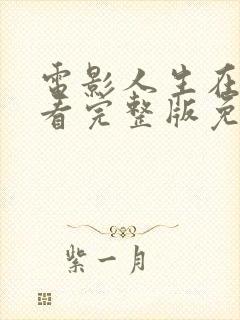 电影人生在
看完整版免
紫一月